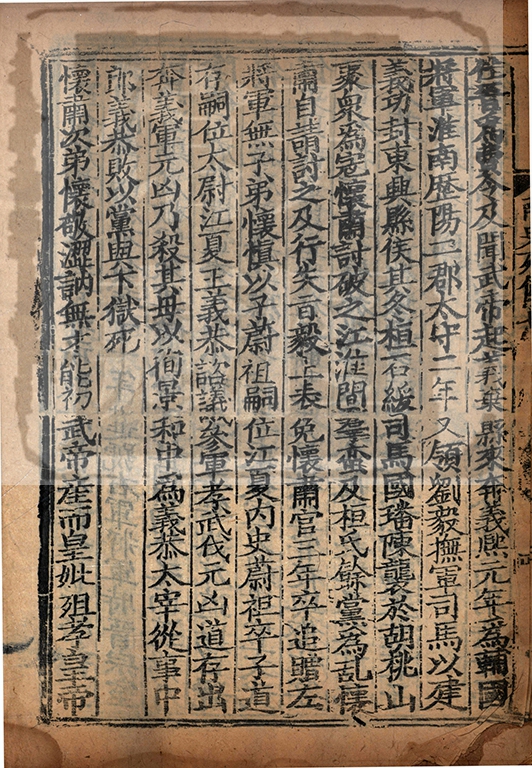 及聞武帝起義棄縣來奔義熙元年爲輔國
將軍淮南歷陽二郡太守二年又領劉毅撫軍司馬以建
義功封東興縣侯其冬桓石綏司馬國璠陳襲於胡桃山
聚衆爲冦懷肅討破之江淮間羣蠻及桓氏餘黨爲亂懷
肅自請討之及行失㫖毅上表免懷肅官三年卒追贈左
將軍無子弟懷慎以子蔚祖嗣位江夏内史蔚祖卒子道
存嗣位太尉江夏王義恭諮議參軍孝武伐元凶道存出
奔義軍元凶乃殺其母以徇景和中爲義恭太宰從事中
郎義恭敗以黨與下獄死
懷肅次弟懷敬澀訥無才能初武帝産而皇妣殂孝皇帝